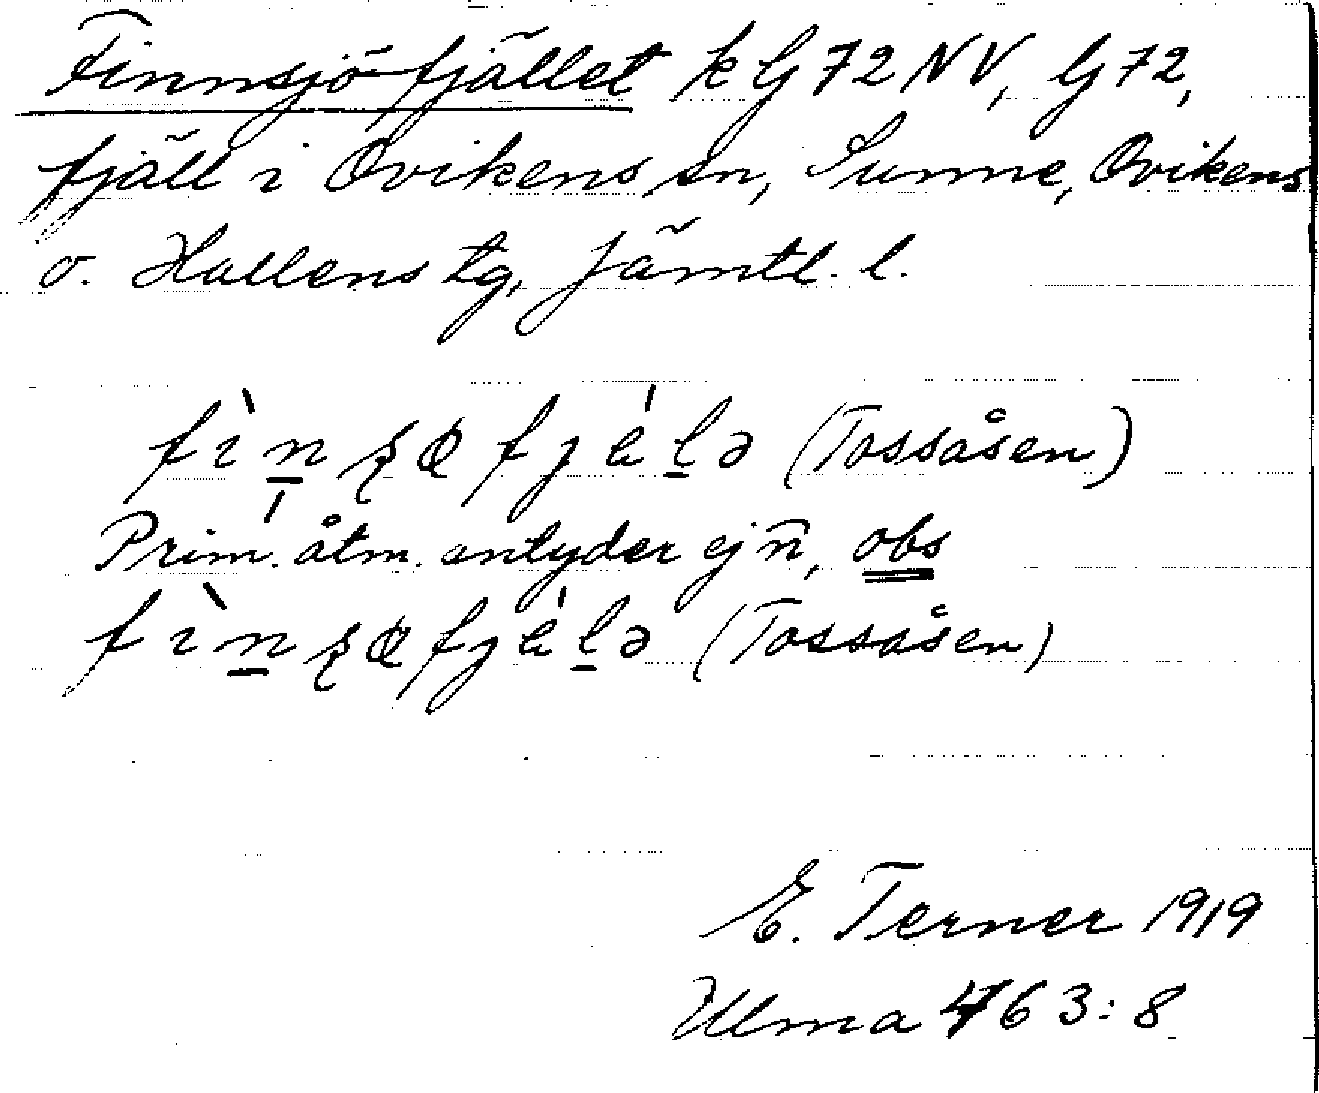 Finnsjö-fjället k G 72 NV, G 72,
fjäll i Ovikens sn, Sunne, Ovikens
o. Hallens tg, Jämtl. l.
(Tossåsen)
Prim. åtm. antyder ej n̄, obs
(Tossåsen)
E. Terner 1919
Ulma 463:8